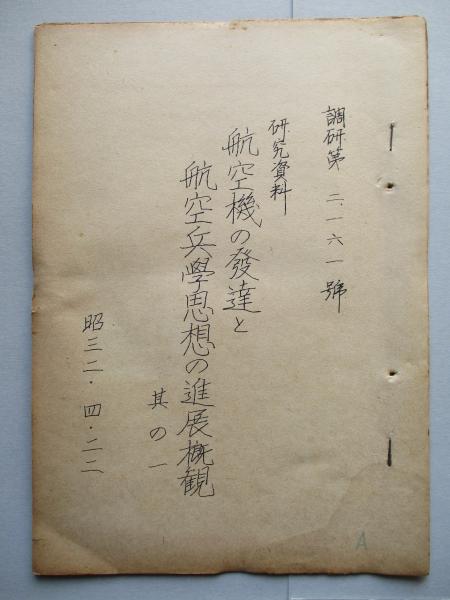 調研第二、一六一號
研究資料
航空機の發達と
航空兵學思想の進展概観
其の一
昭三二・四・二二
A